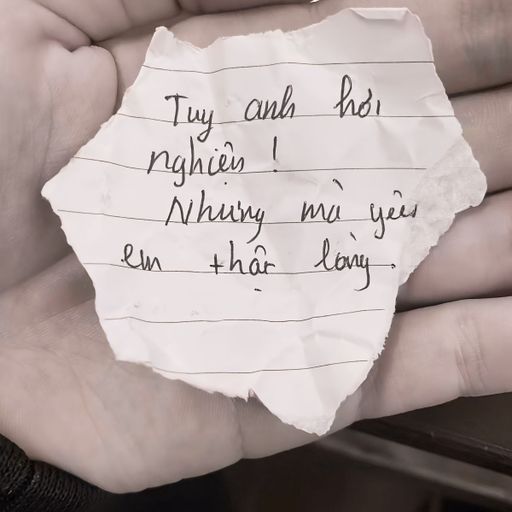 Tuy anh hơi
nghiện !
Nhưng mà yêu
em thật lòng.